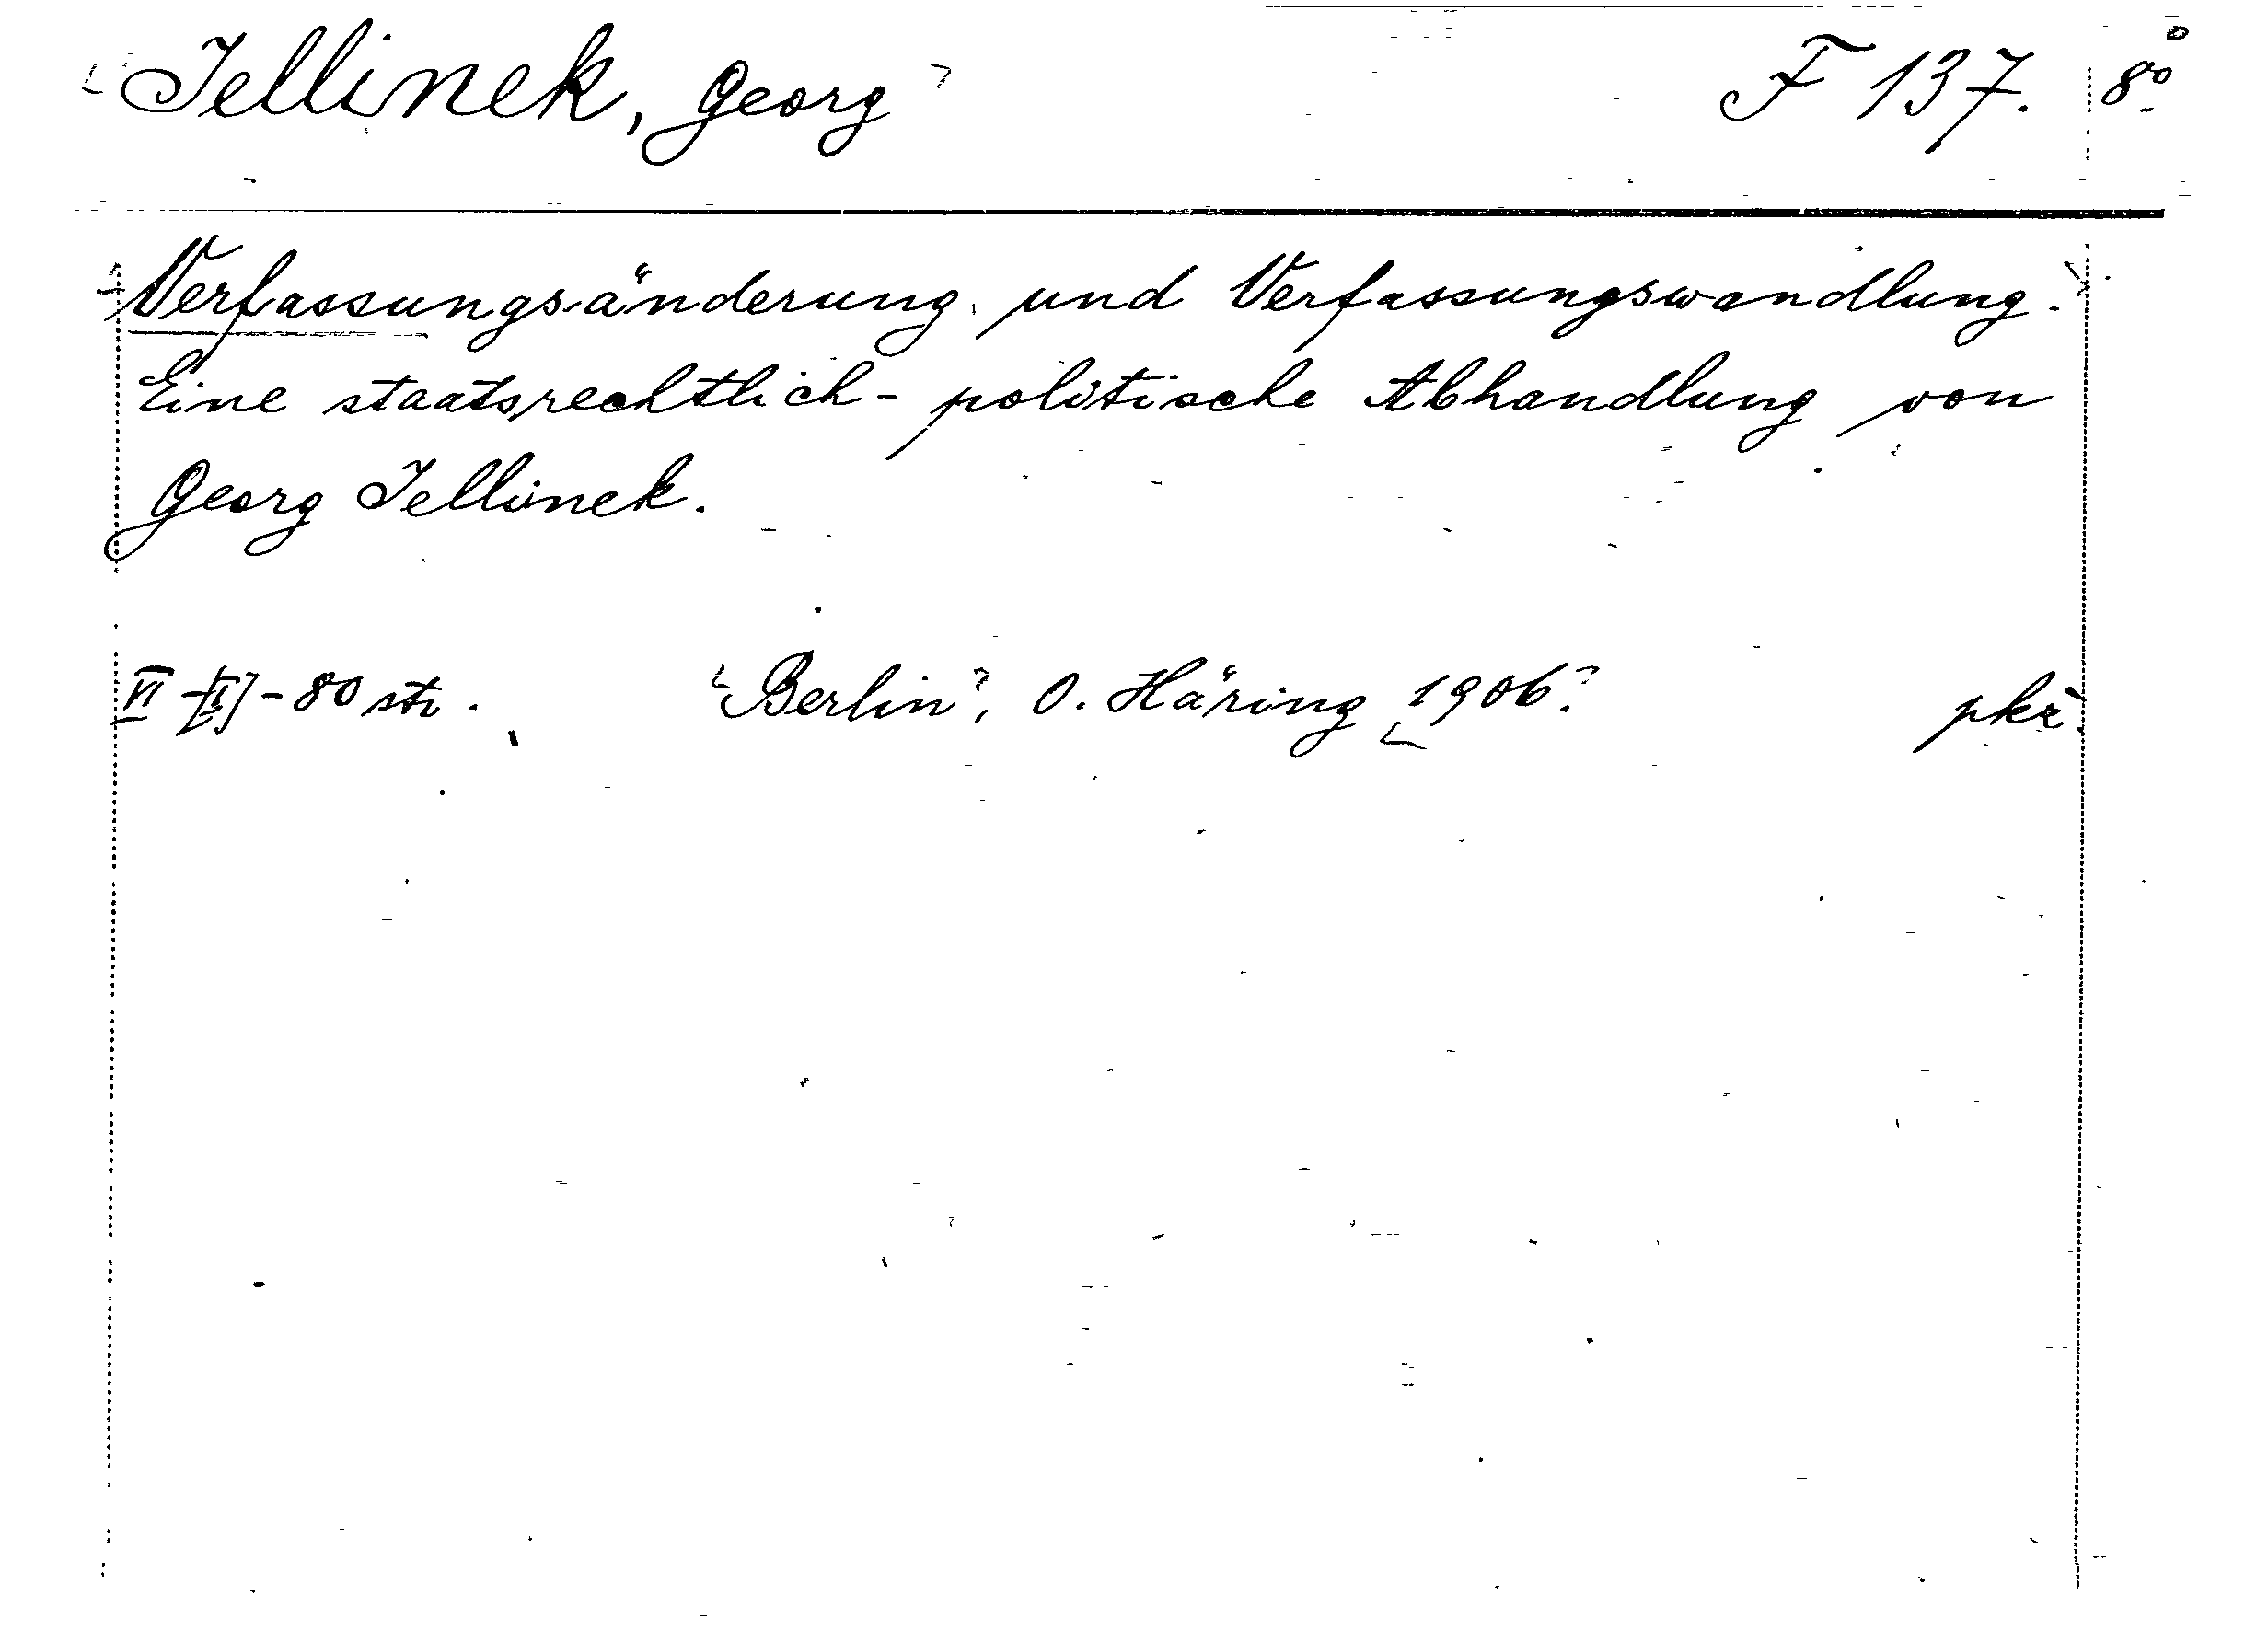 Jellinek, Georg F 137. 8°
Verfassungsänderung und Verfassungswandlung.
Eine staatsrechtlich-politische Abhandlung von
Georg Jellinek.
VI-[II]-80 str. Berlin, O. Häring 1906. pkr.